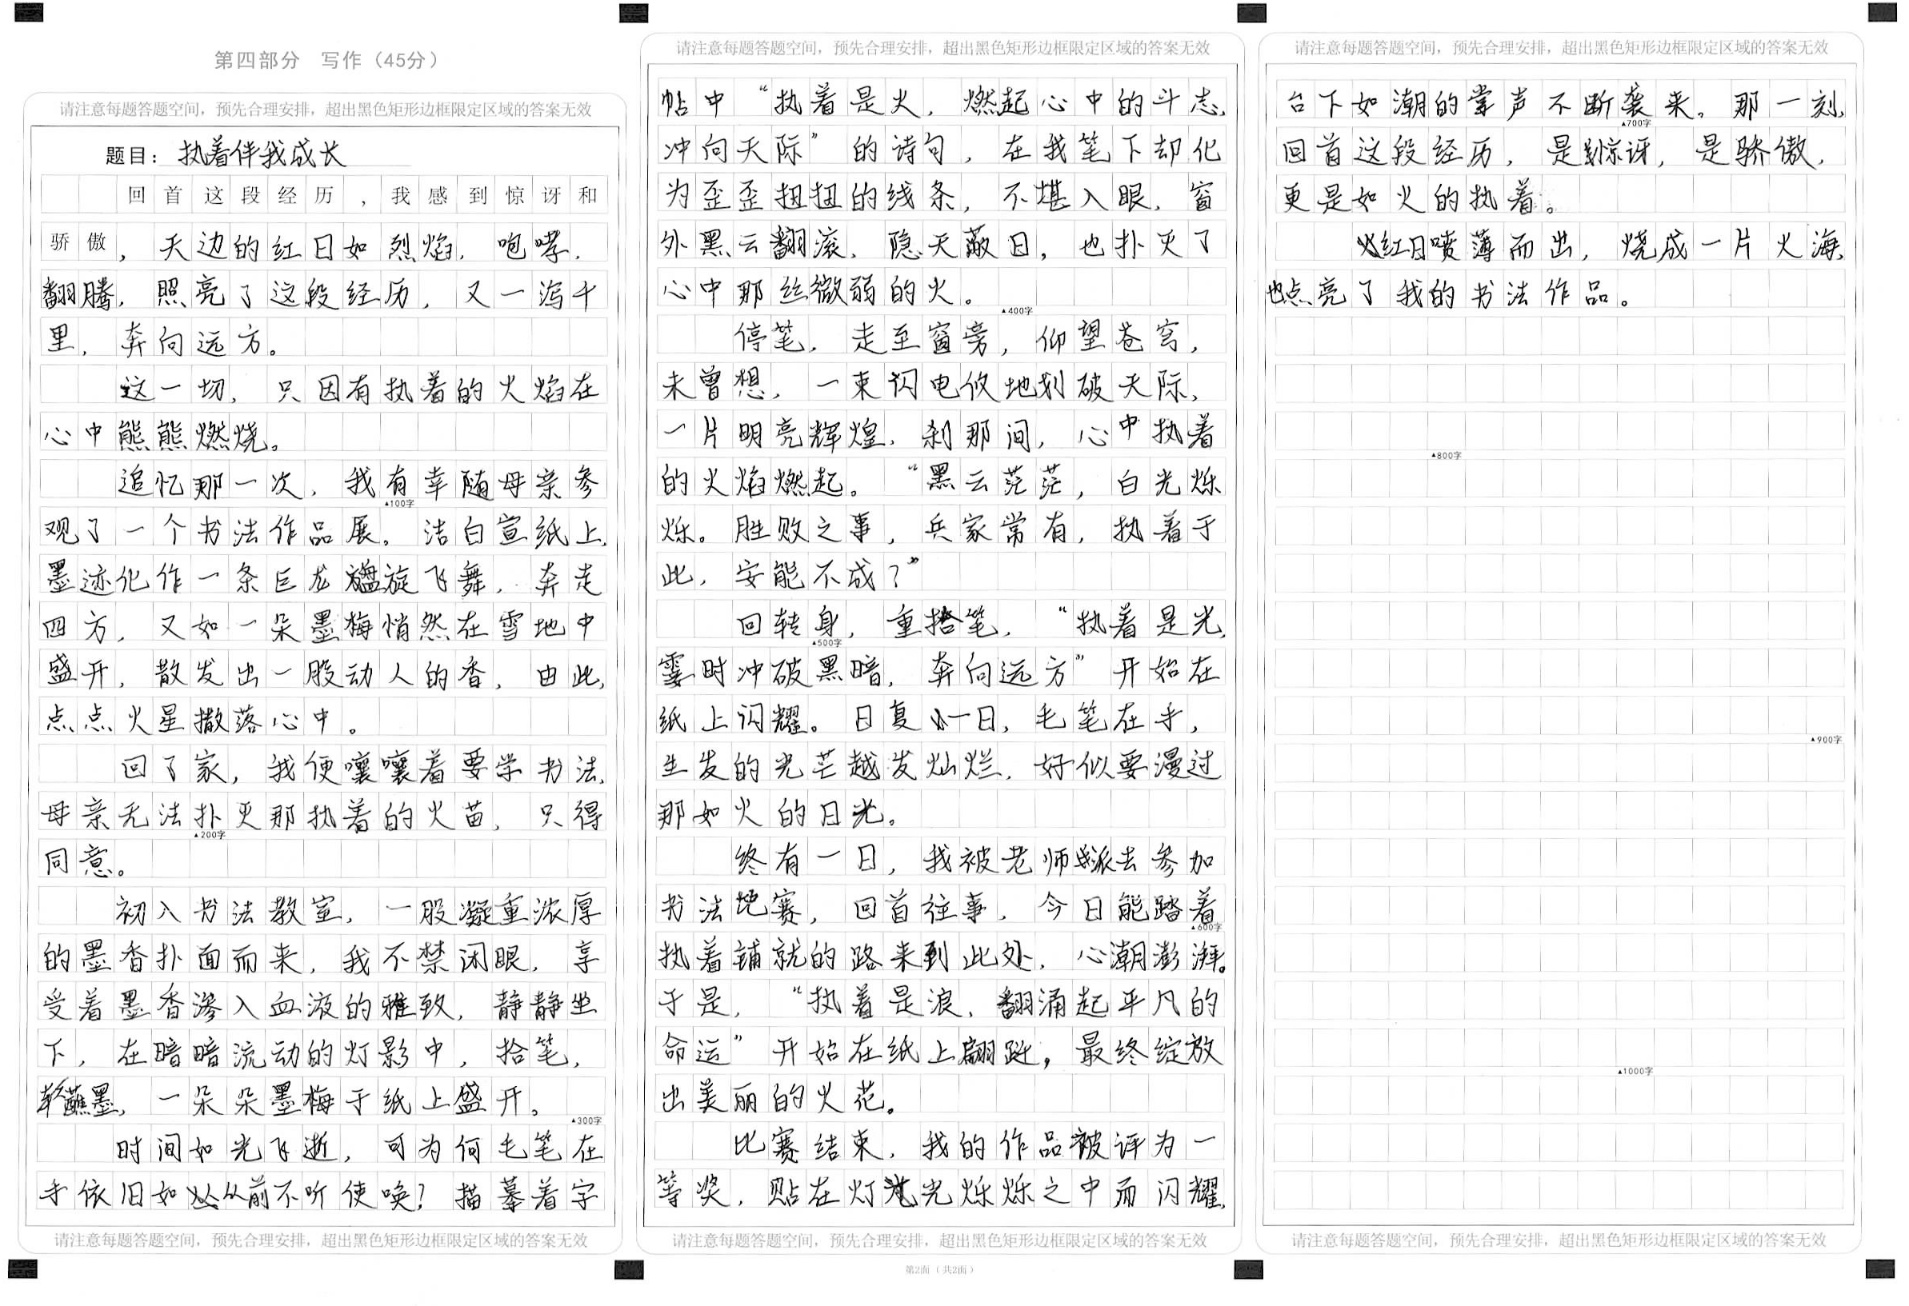 第四部分 写作（45分）
请注意每题答题空间，预先合理安排，超出黑色矩形边框限定区域的答案无效
题目：执着伴我成长
回首这段经历，我感到惊讶和
骄傲，天边的红日如烈焰，咆哮，
翻腾，照亮了这段经历，又一泻千
里，奔向远方。
这一切，只因有执着的火焰在
心中熊熊燃烧。
追忆那一次，我有幸随母亲参
▲100字
观了一个书法作品展。洁白宣纸上，
墨迹化作一条巨龙盘旋飞舞，奔走
四方，又如一朵墨梅悄然在雪地中
盛开，散发出一股动人的香，由此，
点点火星撒落心中。
回了家，我便嚷嚷着要学书法，
母亲无法扑灭那执着的火苗，只得
▲200字
同意。
初入书法教室，一股凝重浓厚
的墨香扑面而来，我不禁闭眼，享
受着墨香渗入血液的雅致，静静坐
下，在暗暗流动的灯影中，拾笔，
蘸墨，一朵朵墨梅于纸上盛开。
▲300字
时间如光飞逝，可为何毛笔在
手依旧如从前不听使唤？描摹着字
请注意每题答题空间，预先合理安排，超出黑色矩形边框限定区域的答案无效
请注意每题答题空间，预先合理安排，超出黑色矩形边框限定区域的答案无效
帖中“执着是火，燃起心中的斗志，
冲向天际”的诗句，在我笔下却化
为歪歪扭扭的线条，不堪入眼，窗
外黑云翻滚，隐天蔽日，也扑灭了
心中那丝微弱的火。
▲400字
停笔，走至窗旁，仰望苍穹，
未曾想，一束闪电攸地划破天际，
一片明亮辉煌，刹那间，心中执着
的火焰燃起。“黑云茫茫，白光烁
烁。胜败之事，兵家常有，执着于
此，安能不成？”
回转身，重拾笔，“执着是光，
▲500字
霎时冲破黑暗，奔向远方”开始在
纸上闪耀。日复一日，毛笔在手，
生发的光芒越发灿烂，好似要漫过
那如火的日光。
终有一日，我被老师派去参加
书法比赛，回首往事，今日能踏着
▲600字
执着铺就的路来到此处，心潮澎湃。
于是，“执着是浪，翻涌起平凡的
命运”开始在纸上翩跹，最终绽放
出美丽的火花。
比赛结束，我的作品被评为一
等奖，贴在灯光烁烁之中而闪耀，
请注意每题答题空间，预先合理安排，超出黑色矩形边框限定区域的答案无效
第2面（共2面）
请注意每题答题空间，预先合理安排，超出黑色矩形边框限定区域的答案无效
台下如潮的掌声不断袭来。那一刻，
▲700字
回首这段经历，是惊讶，是骄傲，
更是如火的执着。
红日喷薄而出，烧成一片火海，
也点亮了我的书法作品。
▲800字
▲900字
▲1000字
请注意每题答题空间，预先合理安排，超出黑色矩形边框限定区域的答案无效